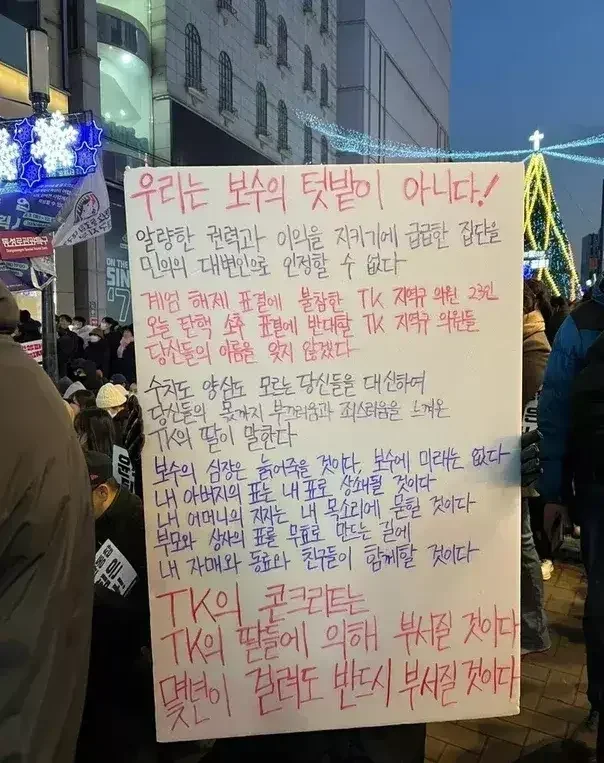 우리는 보수의 텃밭이 아니다!
알량한 권력과 이익을 지키기에 급급한 집단을
민의의 대변인으로 인정할 수 없다
계엄 해제 표결에 불참한 TK 지역구 의원 23인
오늘 탄핵 소추 표결에 반대할 TK 지역구 의원들
당신들의 이름을 잊지 않겠다
수치도 양심도 모르는 당신들을 대신하여
당신들의 몫까지 부끄러움과 죄스러움을 느껴온
TK의 딸이 말한다
보수의 심장은 늙어죽을 것이다, 보수에 미래는 없다
내 아버지의 표는 내 표로 상쇄될 것이다
내 어머니의 지지는 내 목소리에 묻힐 것이다
부모와 상사의 표를 무효로 만드는 길에
내 자매와 동료와 친구들이 함께할 것이다
TK의 콘크리트는
TK의 딸들에 의해 부서질 것이다
몇년이 걸려도 반드시 부서질 것이다
ON THE